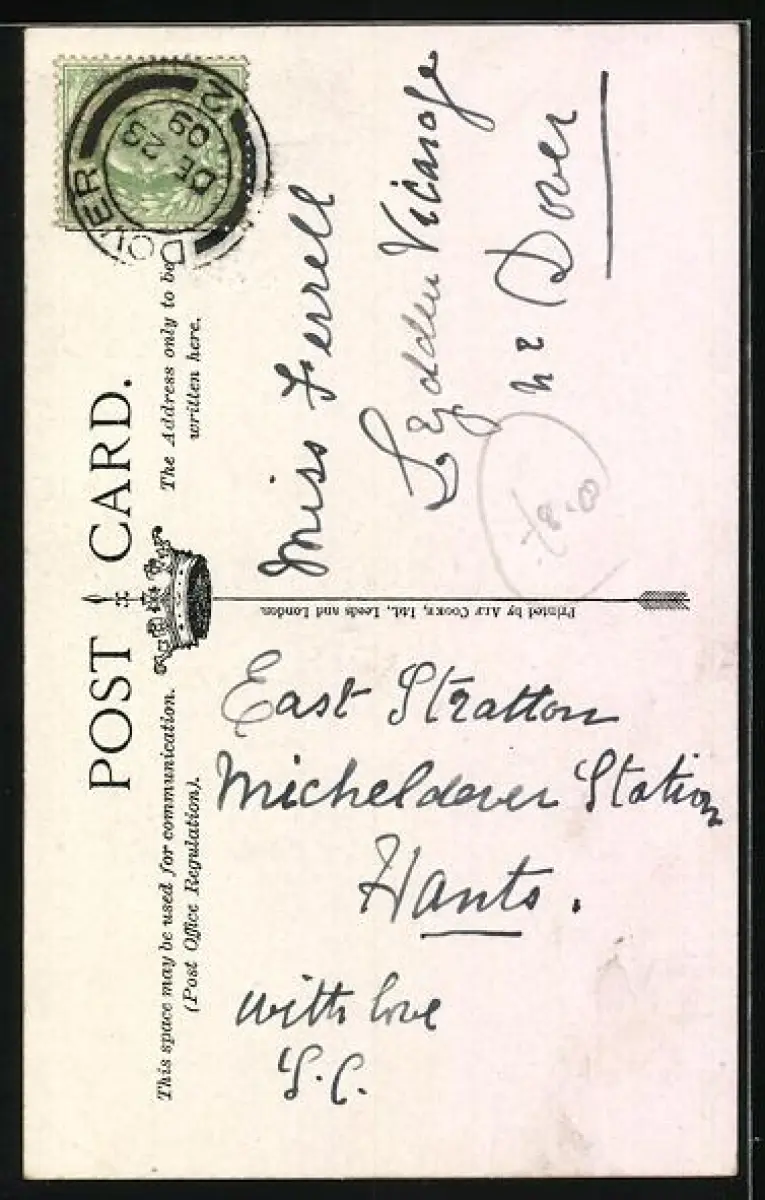 POST CARD.
This space may be used for communication.
(Post Office Regulation).
The Address only to be
written here.
DOVER
DE 23
09
Miss Ferrell
Lydden Vicarage
nr Dover
Printed by ALF COOKE, Ltd., Leeds and London.
East Stratton
Micheldever Station
Hants.
with love
S.C.